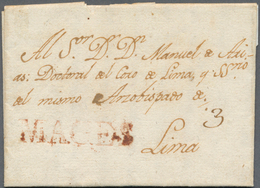 Al Sor. D.r D.n Manuel de Ari-
as: Doctoral del Coro de Lima, y Srio
del mismo Arzobispado de
3
Lima